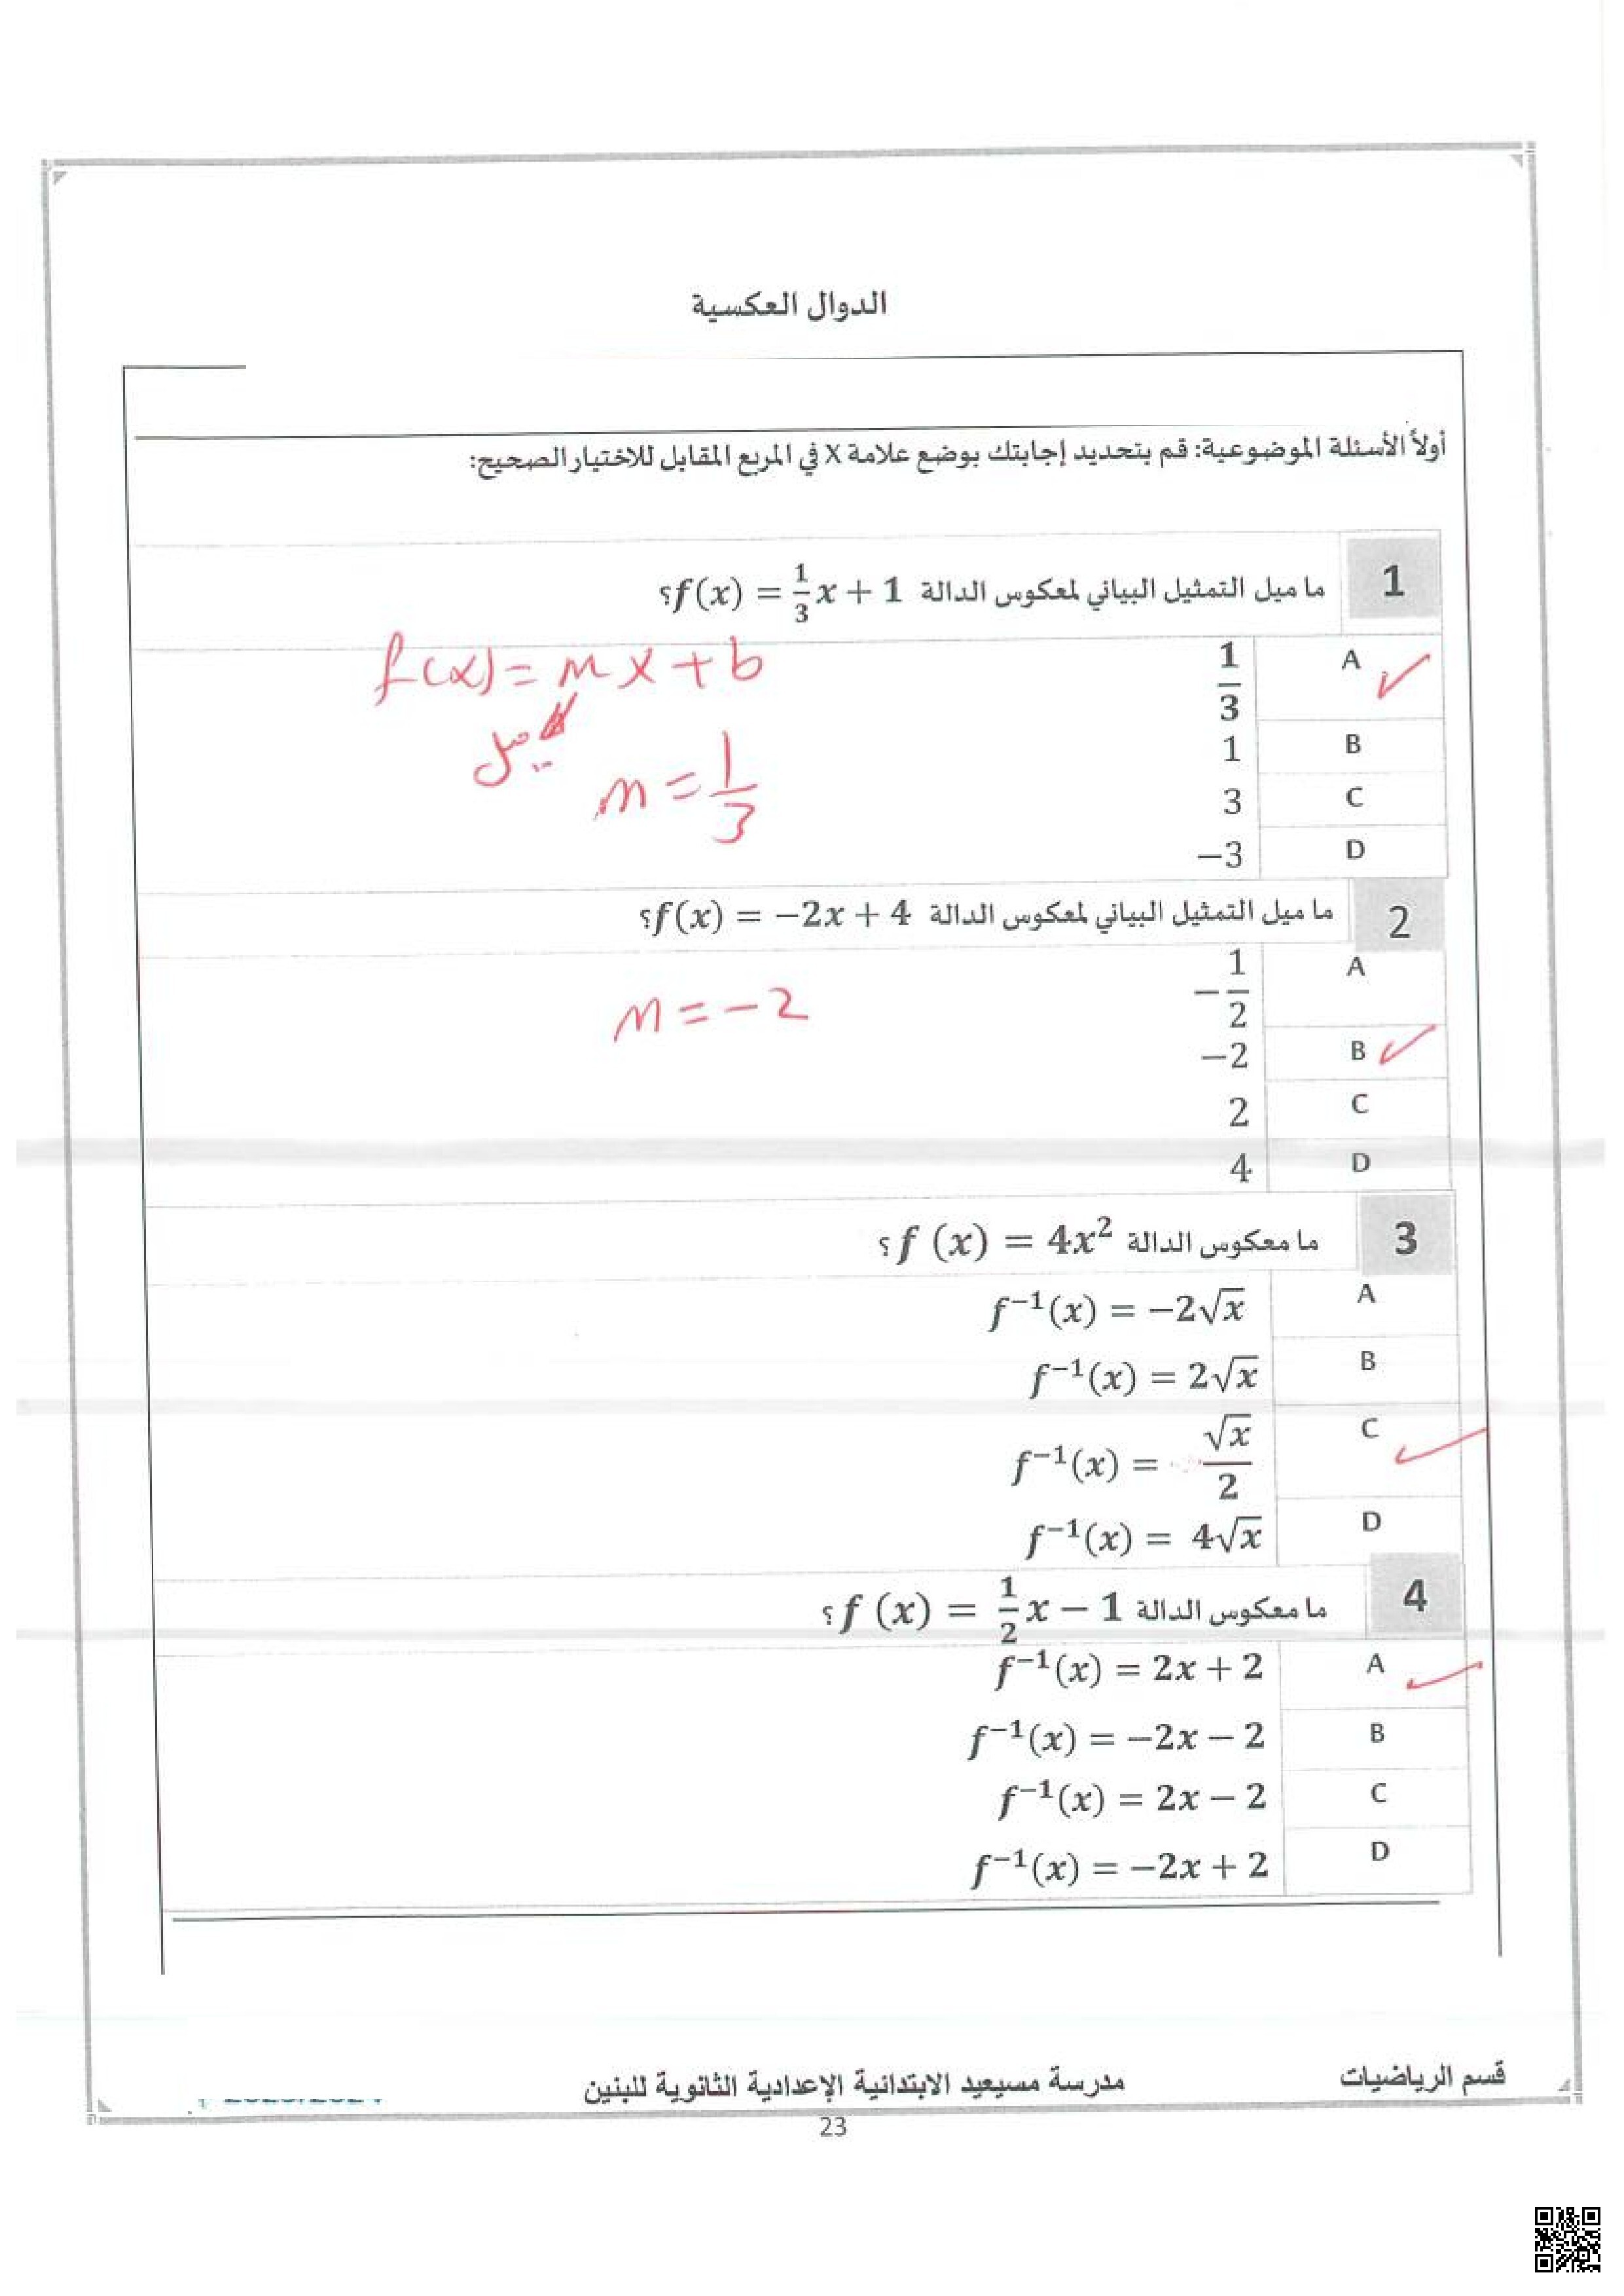 الدوال العكسية
أولاً الأسئلة الموضوعية: قم بتحديد إجابتك بوضع علامة X في المربع المقابل للاختيار الصحيح:
1 ما ميل التمثيل البياني لمعكوس الدالة f(x) = 1/3 x + 1؟
f(x) = mx + b
ميل
m = 1/3
A 1/3 ✓
B 1
C 3
D −3
2 ما ميل التمثيل البياني لمعكوس الدالة f(x) = −2x + 4؟
m = −2
A −1/2
B −2 ✓
C 2
D 4
3 ما معكوس الدالة f (x) = 4x²؟
A f⁻¹(x) = −2√x
B f⁻¹(x) = 2√x
C f⁻¹(x) = √x/2 ✓
D f⁻¹(x) = 4√x
4 ما معكوس الدالة f (x) = 1/2 x − 1؟
A f⁻¹(x) = 2x + 2 ✓
B f⁻¹(x) = −2x − 2
C f⁻¹(x) = 2x − 2
D f⁻¹(x) = −2x + 2
قسم الرياضيات مدرسة مسيعيد الابتدائية الإعدادية الثانوية للبنين
23